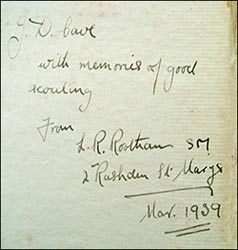 J. D. Cave
with memories of good
scouting
From
L. R. Rootham SM
2 Rushden St Marys
Mar. 1939